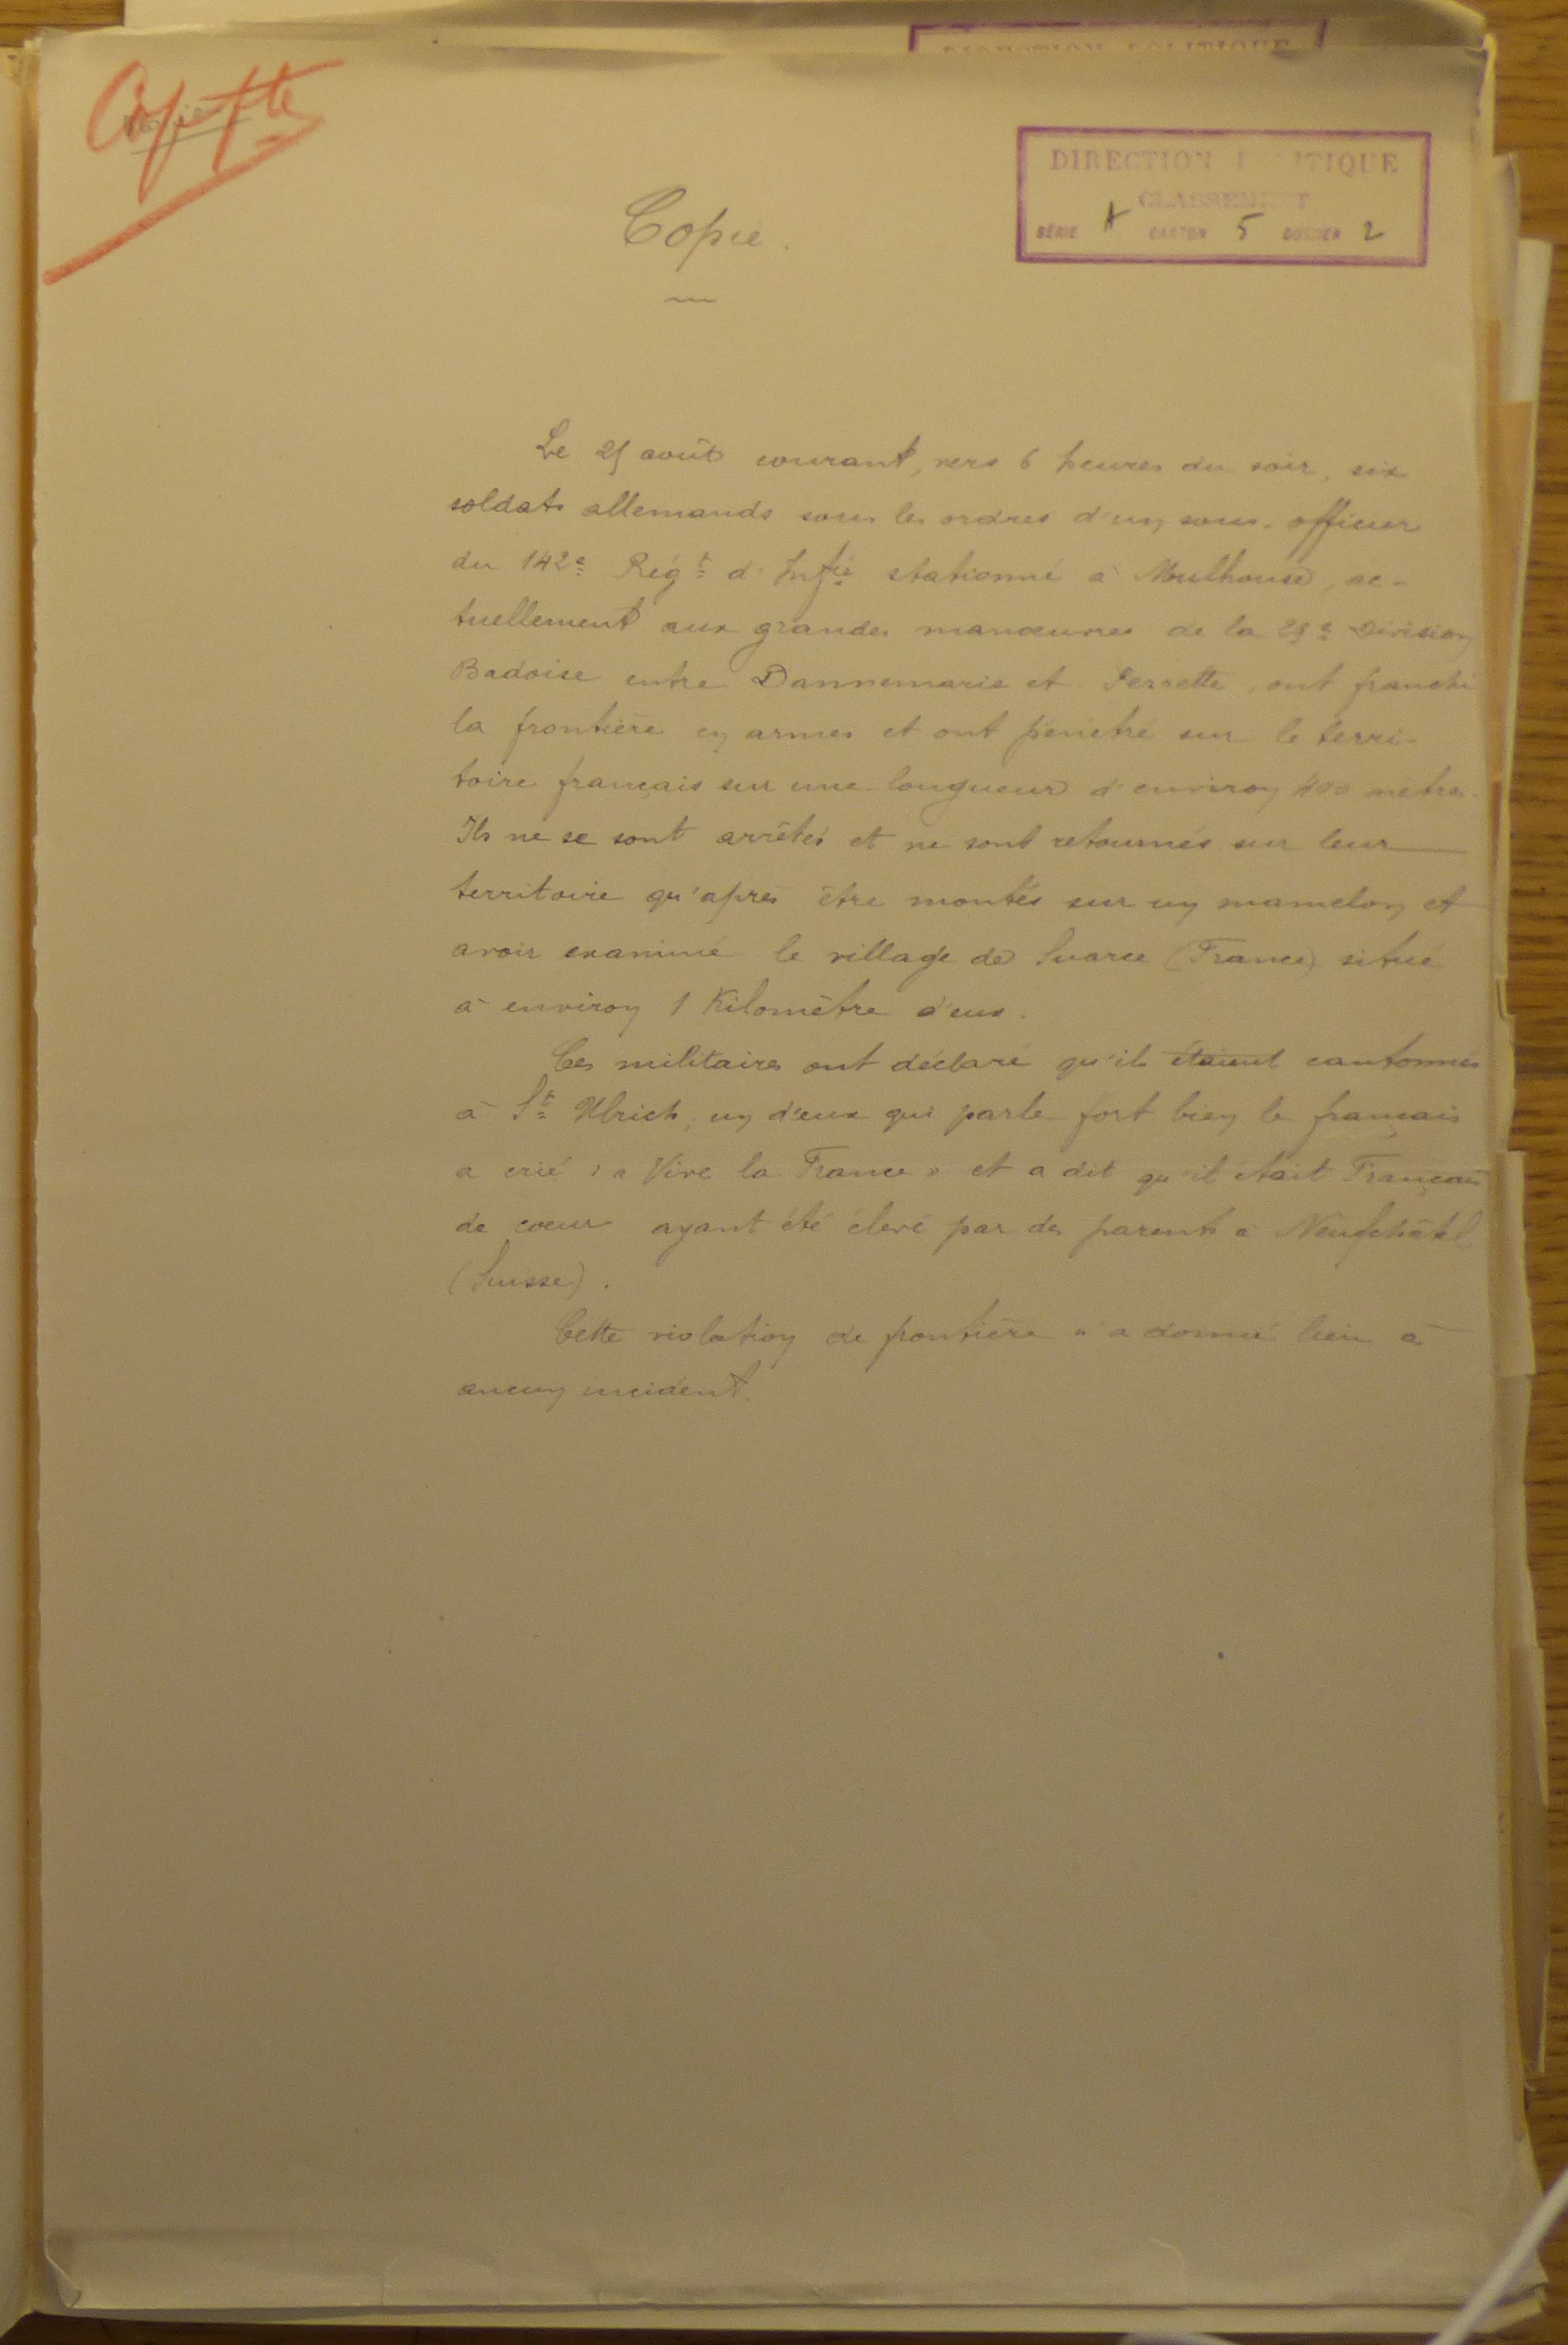 DIRECTION POLITIQUE
Copie
DIRECTION POLITIQUE
CLASSEMENT
SÉRIE A CARTON 5 DOSSIER 2
Copie.
Le août courant, vers 6 heures du soir, six
soldats allemands sous les ordres d'un sous-officier
du 142e Régt d'Infie stationné à Mulhouse, ac-
tuellement aux grandes manœuvres de la 29e Division
Badoise entre Dannemarie et Ferrette, ont franchi
la frontière en armes et ont pénétré sur le terri-
toire français sur une longueur d'environ 400 mètres.
Ils ne se sont arrêtés et ne sont retournés sur leur
territoire qu'après être montés sur un mamelon et
avoir examiné le village de Suarce (France) situé
à environ 1 Kilomètre d'eux.
Ces militaires ont déclaré qu'ils étaient cantonnés
à St Ulrich; un d'eux qui parle fort bien le français
a crié : « Vive la France » et a dit qu'il était Français
de cœur ayant été élevé par des parents à Neufchâtel
(Suisse).
Cette violation de frontière n'a donné lieu à
aucun incident.